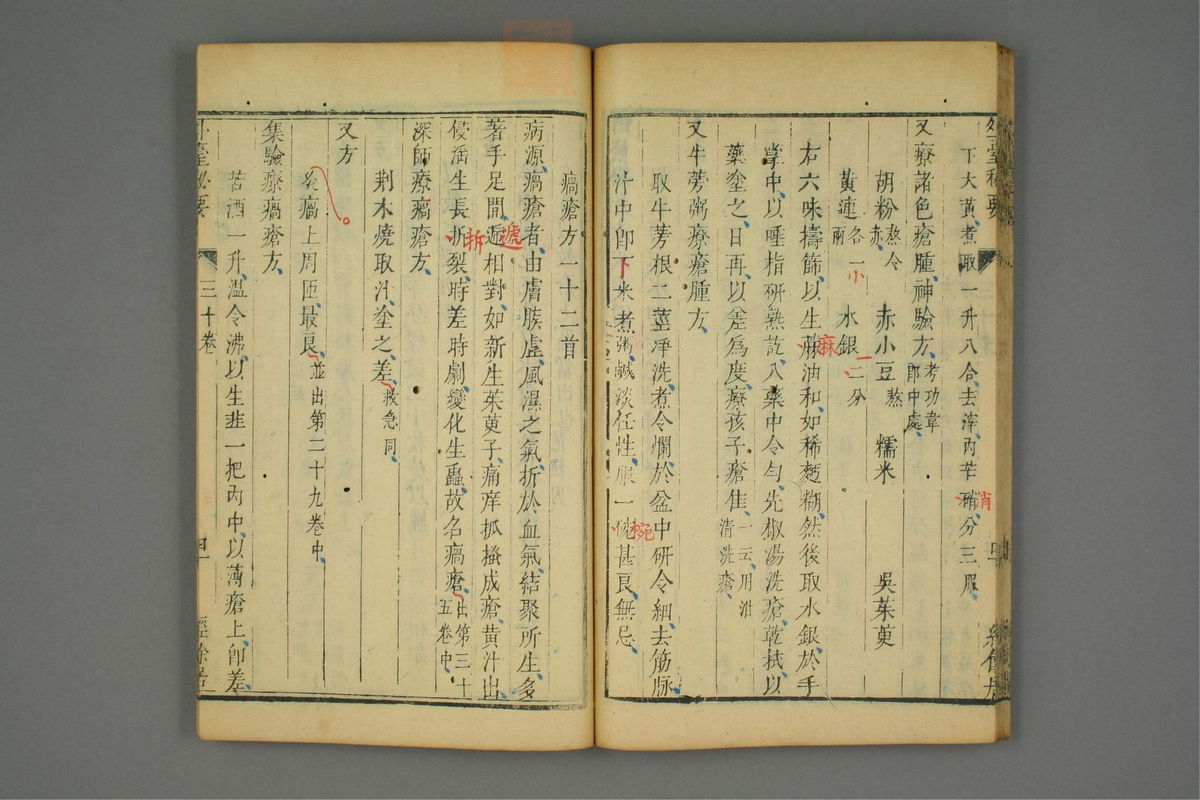 下大黃煮取一升八合去滓內芒硝分三服
消
又療諸色瘡腫神驗方考功韋郎中處
胡粉熬令赤 赤小豆熬 糯米 吳茱萸
黃連各一兩 水銀二分
小
一
右六味擣篩以生麻油和如稀麪糊然後取水銀於手
麻
掌中以唾指研熟訖入藥中令勻先椒湯洗瘡乾拭以
藥塗之日再以差為度療孩子瘡佳一云用泔清洗瘡
又牛蒡粥療瘡腫方
取牛蒡根二莖淨洗煮令爛於盆中研令細去筋脉
汁中卽下米煮粥鹹淡任性服一椀甚良無忌
椀
瘑瘡方一十二首
病源瘑瘡者由膚腠虛風濕之氣折於血氣結聚所生多
著手足間遞相對如新生茱萸子痛痒抓搔成瘡黃汁出
遞
侵淫生長拆裂時差時劇變化生蟲故名瘑瘡出第三十五卷中
拆
深師療瘑瘡方
荆木燒取汁塗之差救急同
又方
灸瘑上周匝最良並出第二十九卷中
集驗療瘑瘡方
苦酒一升溫令沸以生韭一把內中以薄瘡上卽差
外臺秘要
三十卷
四
經餘居